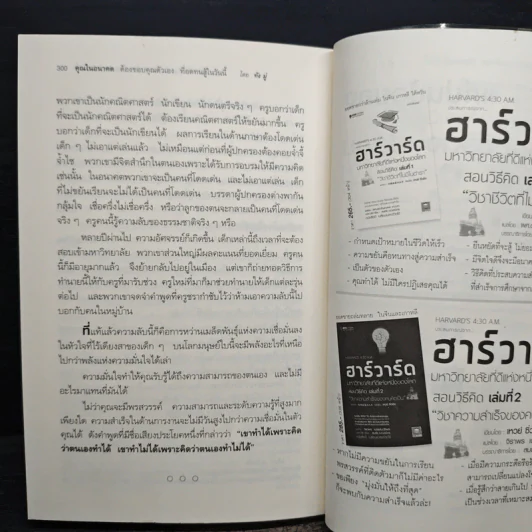 300 คุณในอนาคต ต้องขอบคุณตัวเอง ที่อดทนสู้ในวันนี้ โดย
พวกเขาเป็นนักคณิตศาสตร์ นักเขียน นักดนตรีจริง ๆ ครูบอกว่าเด็ก
ที่จะเป็นนักคณิตศาสตร์ได้ ต้องเรียนคณิตศาสตร์ให้ขยันมากขึ้น ครู
บอกว่าเด็กที่จะเป็นนักเขียนได้ ผลการเรียนในด้านภาษาต้องโดดเด่น
เด็ก ๆ ไม่เอาแต่เล่นแล้ว ไม่เหมือนแต่ก่อนที่ผู้ปกครองต้องคอยจ้ำจี้
จ้ำไช พวกเขามีจิตสำนึกในตนเองเพราะได้รับการอบรมให้มีความคิด
เช่นนั้น ในอนาคตพวกเขาจะเป็นคนที่โดดเด่น และไม่เอาแต่เล่น เด็ก
ที่ไม่ขยันเรียนจะไม่ได้เป็นคนที่โดดเด่น บรรดาผู้ปกครองต่างพากัน
กลุ้มใจ เชื่อครึ่งไม่เชื่อครึ่ง หรือว่าลูกของตนจะกลายเป็นคนที่โดดเด่น
จริง ๆ ครูคนนี้รู้ความลับของธรรมชาติจริง ๆ หรือ
หลายปีผ่านไป ความอัศจรรย์ก็เกิดขึ้น เด็กเหล่านี้ถึงเวลาที่จะต้อง
สอบเข้ามหาวิทยาลัย พวกเขาส่วนใหญ่มีผลคะแนนที่ยอดเยี่ยม ครูคน
นี้ก็มีอายุมากแล้ว จึงย้ายกลับไปอยู่ในเมือง แต่เขาก็ถ่ายทอดวิธีการ
ทำนายนี้ให้กับครูที่มารับช่วง ครูใหม่ที่มาก็มาช่วยทำนายให้เด็กแต่ละรุ่น
ต่อไป และพวกเขาจดจำคำพูดที่ครูชรากำชับไว้ว่าห้ามเอาความลับนี้ไป
บอกกับคนในหมู่บ้าน
ที่แท้แล้วความลับนี้ก็คือการหว่านเมล็ดพันธุ์แห่งความเชื่อมั่นลง
ในหัวใจที่ไร้เดียงสาของเด็ก ๆ บนโลกมนุษย์ใบนี้จะมีพลังอะไรที่เหนือ
ไปกว่าพลังแห่งความมั่นใจได้เล่า
ความมั่นใจทำให้คุณรับรู้ได้ถึงความสามารถของตนเอง และไม่มี
อะไรมาแทนที่มันได้
ไม่ว่าคุณจะมีพรสวรรค์ ความสามารถและระดับความรู้ที่สูงมาก
เพียงใด ความสำเร็จในด้านการงานจะไม่มีวันสูงไปกว่าความเชื่อมั่นในตัว
คุณได้ ดังคำพูดที่มีชื่อเสียงประโยคหนึ่งที่กล่าวว่า "เขาทำได้เพราะคิด
ว่าตนเองทำได้ เขาทำไม่ได้เพราะคิดว่าตนเองทำไม่ได้"
HARVARD'S 4:30 A.M.
ฮาร์วาร์ด
มหาวิทยาลัยที่ดีแห่งหนึ่งของโลก
สอนวิธีคิด เล่มที่ 1
ฮาร์วาร์
มหาวิทยาลัยที่ดีแห่งหนึ่
สอนวิธีคิด
"วิชาชีวิตที่ไม่
- กำหนดเป้าหมายในชีวิตให้เร็ว
- ความขยันคือหนทางสู่ความสำเร็จ
- เป็นตัวของตัวเอง
- คุณทำได้ ไม่มีใครปฏิเสธคุณได้
- ยืนหยัดที่จะสู้
- มีจิตใจดีจึงจะมีอนาค
- วิธีคิดที่ประสบความส
ที่สำเร็จการศึกษาจาก
HARVARD'S 4:30 A.M.
ฮาร์วาร์ด
มหาวิทยาลัยที่ดีแห่งหนึ่งของโลก
สอนวิธีคิด เล่มที่ 2
ฮาร์วาร์
มหาวิทยาลัยที่ดีแห่งหนึ่
สอนวิธีคิด เล่มที่ 2
"วิชาความสำเร็จของค
- หากไม่มีความขยันในการเรียน
พรสวรรค์ที่ติดตัวมาก็ไม่มีค่าอะไร
- ขอเพียง "มุ่งมั่นให้ถึงที่สุด"
ก็จะพบกับความสำเร็จแล้วล่ะ
- เมื่อมีความกระตือรือร้
สามารถเปลี่ยนแปลง
- เมื่อรู้สึกว่าสายเกินไป
เป็นช่วงเวลาที่เหมาะสม